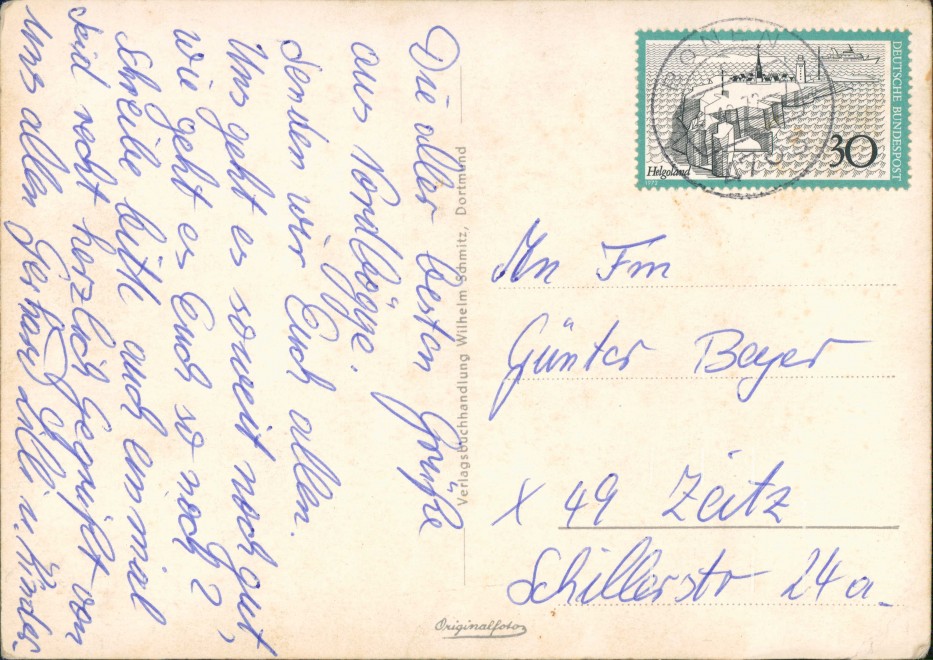 Die aller besten Grüße
aus Nordbögge.
senden wir Euch allen.
Uns geht es soweit noch gut,
wie geht es Euch so noch?
Schreibe bitte auch einmal
Seid recht herzlich gegrüßt von
uns allen Gerhard Lilli u. Kinder
Verlagsbuchhandlung Wilhelm Schmitz, Dortmund
DEUTSCHE BUNDESPOST
30
Helgoland
1972
BÖNEN
An Fm
Günter Beyer
X 49 Zeitz
Schillerstr 24a.
Originalfoto